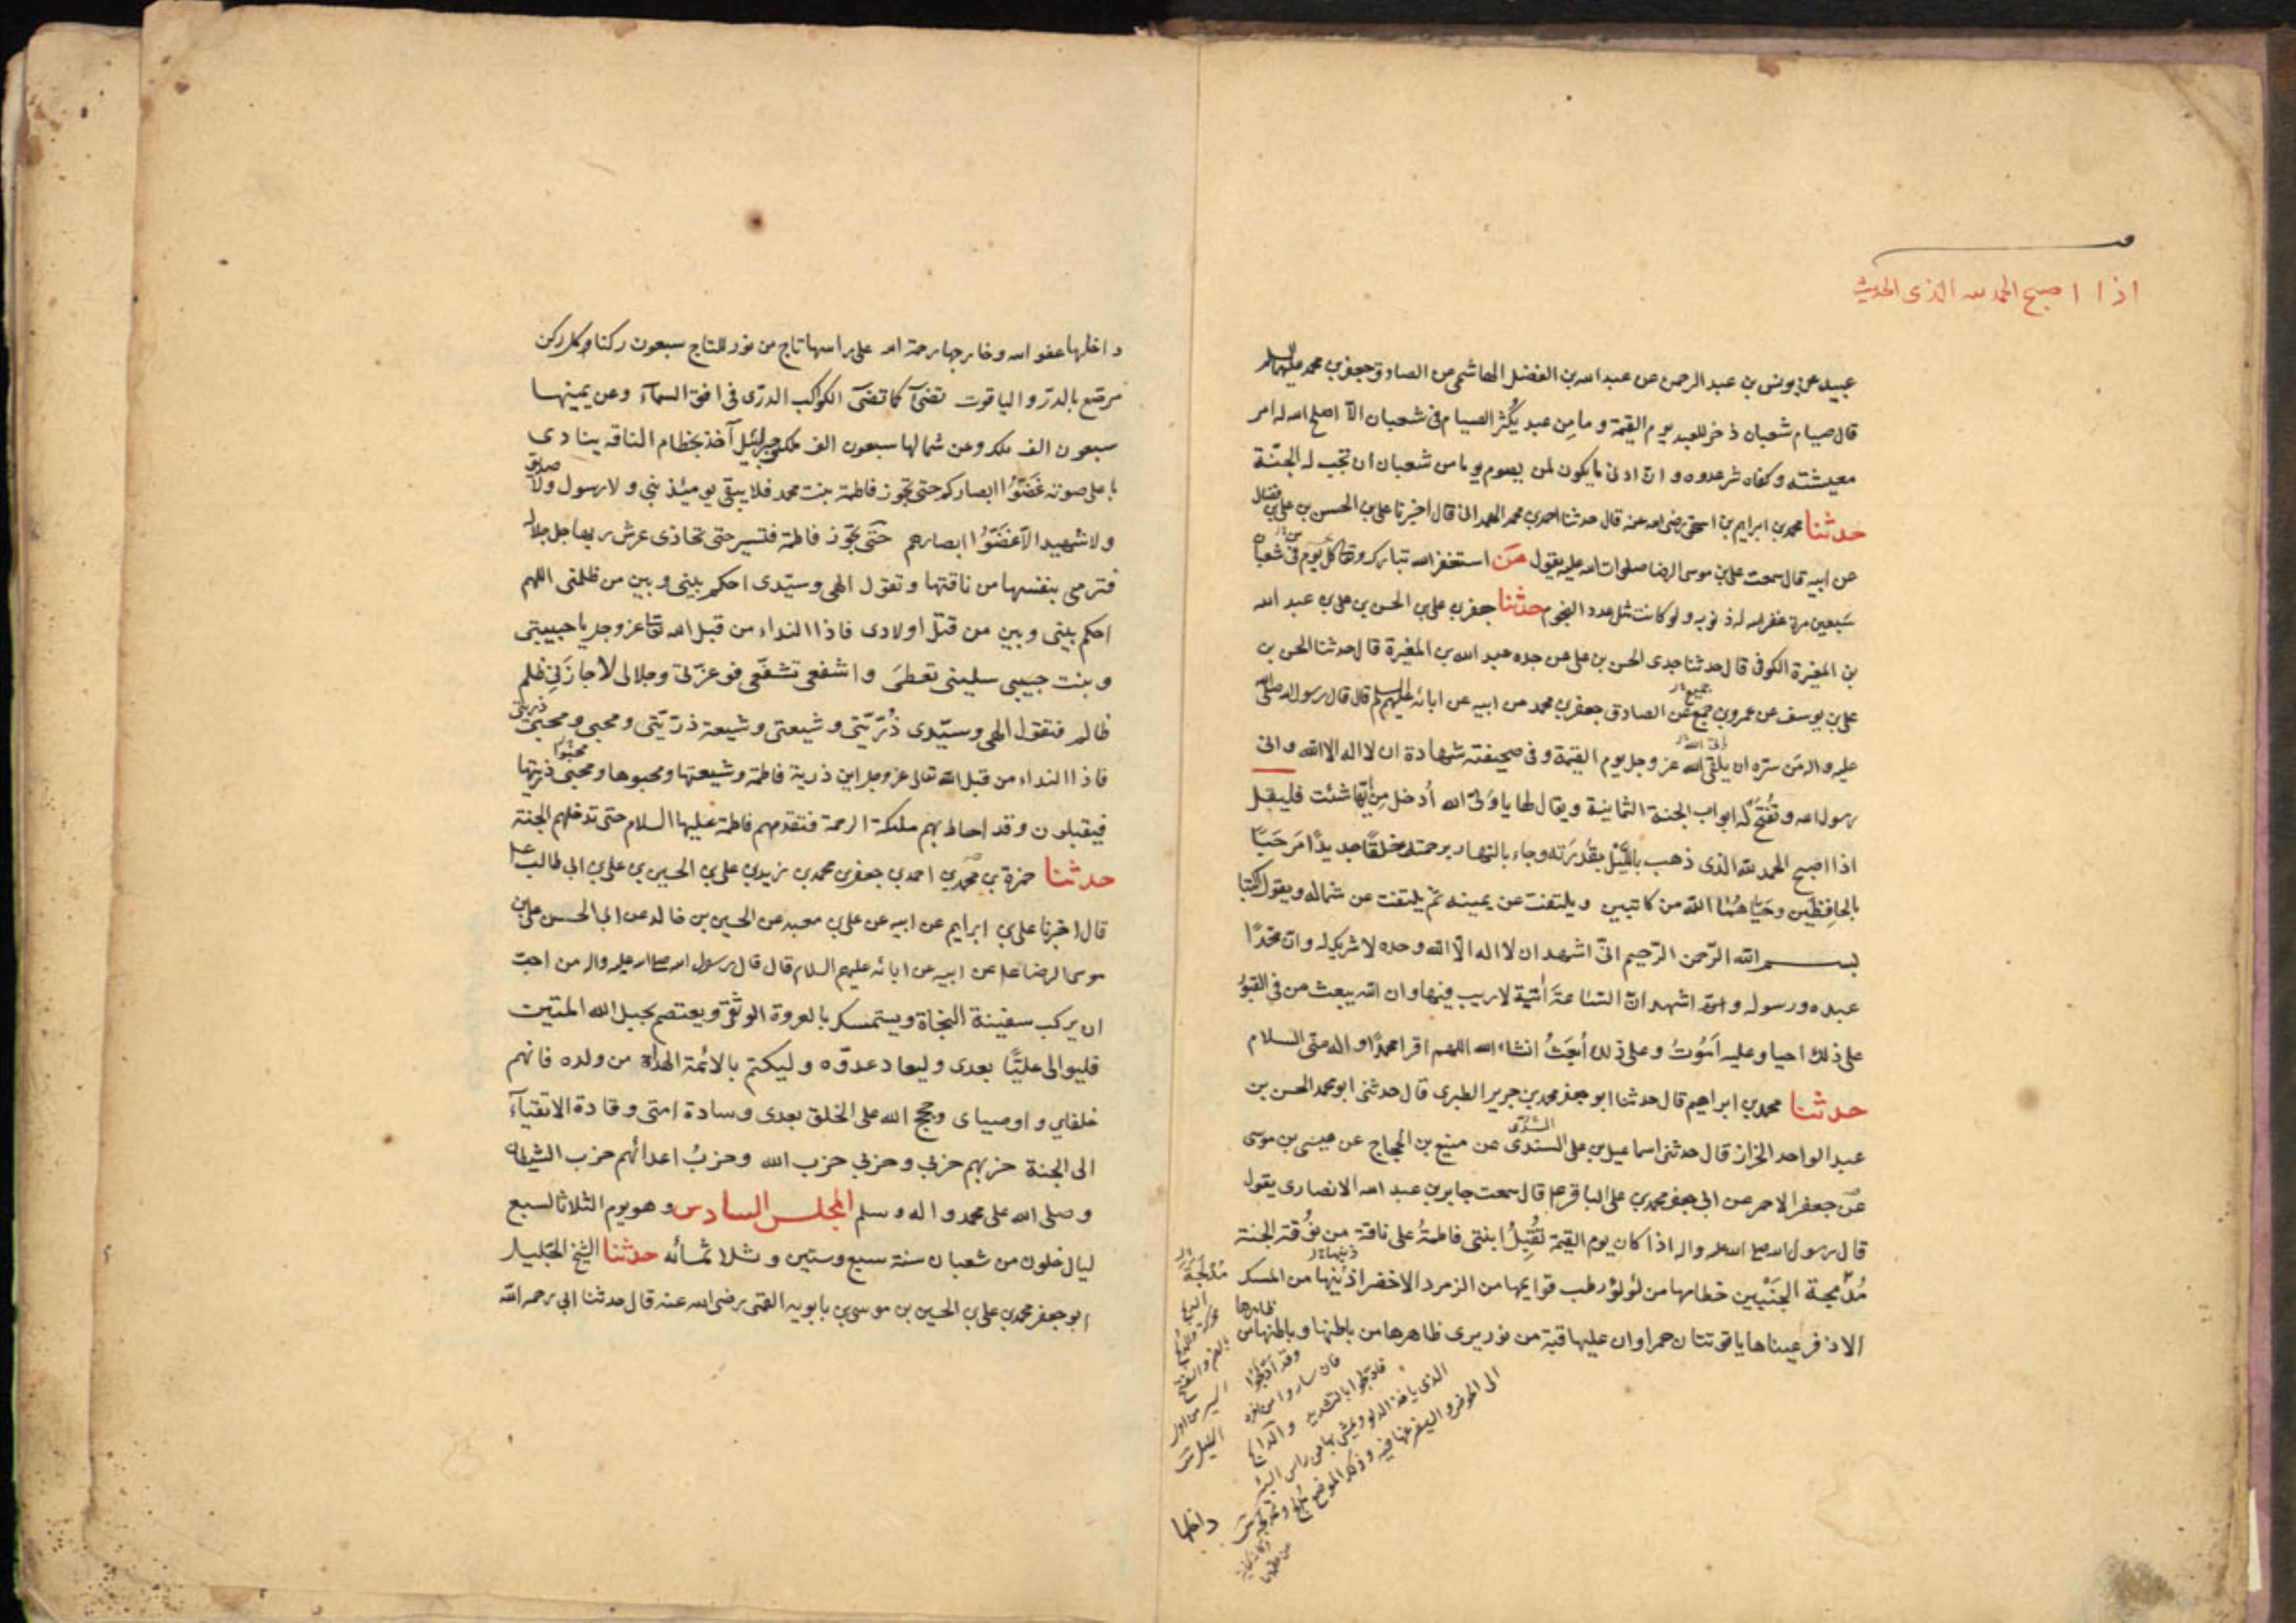 اذا اصبح الحمد لله الذى الحديث
عبيد عن يونس بن عبد الرحمن عن عبد الله بن الفضل الهاشمى عن الصادق جعفر بن محمد عليهما السلم
قال صيام شعبان ذخر للعبد يوم القيمة و ما من عبد يُكثر الصيام فى شعبان الّا اصلح الله له امر
معيشته و كفاه شر عدوه و ان ادنى ما يكون لمن يصوم يوما من شعبان ان تجب له الجنّة
حدثنا محمد بن ابراهيم بن اسحق رضى الله عنه قال حدثنا احمد بن محمد الهمدانى قال اخبرنا على بن الحسن بن على بن فضال
عن ابيه قال سمعت على بن موسى الرضا صلوات الله عليه يقول من استغفر الله تبارك وتعالى كل يوم فى شعبان
سَبعين مرة غفر الله له ذنوبه و لو كانت مثل عدد النجوم حدثنا جعفر بن على بن الحسن بن على بن عبد الله
بن المغيرة الكوفى قال حدثنا جدى الحسن بن على عن جده عبد الله بن المغيرة قال حدثنا الحسن بن
على بن يوسف عن عمرو بن جميع عن الصادق جعفر بن محمد عن ابيه عن ابائه عليهم السلم قال قال رسول الله صلى الله
عليه واله مَن سرّه ان يلقى الله عز وجل يوم القيمة و فى صحيفته شهادة ان لا اله الا الله و انى
رسول الله و تُفتَح له ابواب الجنة الثمانية و يقال لها يا وَلىّ الله اُدخل مِن ايّها شئت فليقل
اذا اصبح الحمد لله الذى ذهب بالليْل بقُدرَته وجاء بالنهار برحمته خلقًا جديدًا مَرحَبًا
بالحافِظَين و حَيّاهُمٰا الله من كاتبين و يلتفت عن يمينه ثم يلتفت عن شماله و يقول اكتبا
بسم الله الرّحمن الرّحيم انّى اشهد ان لا اله الّا الله وحده لا شريك له و انّ محمّدًا
عبده و رسوله و اشهد انّ السّاعةَ اٰتية لا ريب فيها و ان الله يبعث من فى القبور
على ذلك احيا و عليه اَمُوتُ و على ذلك اُبعَثُ انشاء الله اللهم اقرا محمدًا و اله منّى السلام
حدثنا محمد بن ابراهيم قال حدثنا ابو جعفر محمد بن جرير الطبرى قال حدثنى ابو محمد الحسن بن
عبد الواحد الخزاز قال حدثنى اسماعيل بن على السندى عن منيع بن الحجاج عن عيسى بن موسى
عن جعفر الاحمر عن ابى جعفر محمد بن على الباقر ع قال سمعت جابر بن عبد الله الانصارى يقول
قال رسول الله صلى الله عليه واله اذا كان يوم القيمة تُقْبِلُ ابنتى فاطمةُ على ناقة من نُوق الجنة
مُدبّجة الجَنْبَين خطامها من لؤلؤ رطب قوايمها من الزمرد الاخضر اذنبها من المسك
الاذفر عيناها ياقوتتان حمراوان عليها قبة من نور يرى ظاهرها من باطنها و باطنها من ظاهرها
الذى ياخذ الدلو و يمشى بها من راس البئر
الى الحوض
داخلها
داخلها عفو الله و خارجها رحمة الله على راسها تاج من نور للتاج سبعون ركنا و كل ركن
مرصّع بالدرّ و الياقوت تضىٓ كما تضىٓ الكوكب الدرّى فى افق السمآء و عن يمينها
سبعون الف ملك و عن شمالها سبعون الف ملك و جبرئيل آخذ بخطام الناقه ينادى
باعلى صوته غَضُّوْا ابصاركم حتى تجوز فاطمة بنت محمد فلا يبقى يومئذ نبى و لا رسول ولا صديق
و لا شهيد الّا غَضُّوْا ابصارهم حتّى تجوز فاطمة فتسير حتى تحاذى عرش ربها جل جلاله
فترمى بنفسها من ناقتها و تقول الهى و سيّدى احكم بينى و بين من ظلمنى اللهم
احكم بينى و بين من قتل اولادى فاذا النداء من قبل الله تعالى عز وجل يا حبيبتى
و بنت حبيبى سلينى تعطىَ و اشفعى تشفّعى فوعزّتى و جلالى لا جازَنى ظلم
ظالم فتقول الهى و سيّدى ذُرّيّتى و شيعتى و شيعة ذرّيّتى و محبى و محبى ذريتى
فاذا النداء من قبل الله تعالى عز وجل اين ذرية فاطمة و شيعتها و محبوها و محبى ذريتها
فيقبلون و قد احاط بهم ملئكة الرحمة فتقدمهم فاطمة عليها السلام حتى تدخلهم الجنة
حدثنا حمزة بن محمد بن احمد بن جعفر بن محمد بن زيد بن على بن الحسين بن على بن ابى طالب ع
قال اخبرنا على بن ابراهيم عن ابيه عن على بن معبد عن الحسين بن خالد عن ابى الحسن على بن
موسى الرضا ع عن ابيه عن ابائه عليهم السلام قال قال رسول الله صلى الله عليه واله من احبّ
ان يركب سفينة النجاة و يستمسك بالعروة الوثقى و يعتصم بحبل الله المتين
فليوالى عليًّا بعدى و ليعاد عدوّه و ليكتم بالائمة الهداة من ولده فانهم
خلفاى و اوصياى و حجج الله على الخلق بعدى و سادة امتى و قادة الاتقيآء
الى الجنة حزبهم حزبى و حزبى حزب الله و حزبُ اعدائهم حزب الشيطان
و صلى الله على محمد و اله و سلم المجلس السادس و هو يوم الثلاثا لسبع
ليال خلون من شعبان سنة سبع و ستين و ثلاثمأئه حدثنا الشيخ الجليل
ابو جعفر محمد بن على بن الحسين بن موسى بن بابويه القمى رضى الله عنه قال حدثنا ابى رحمه الله